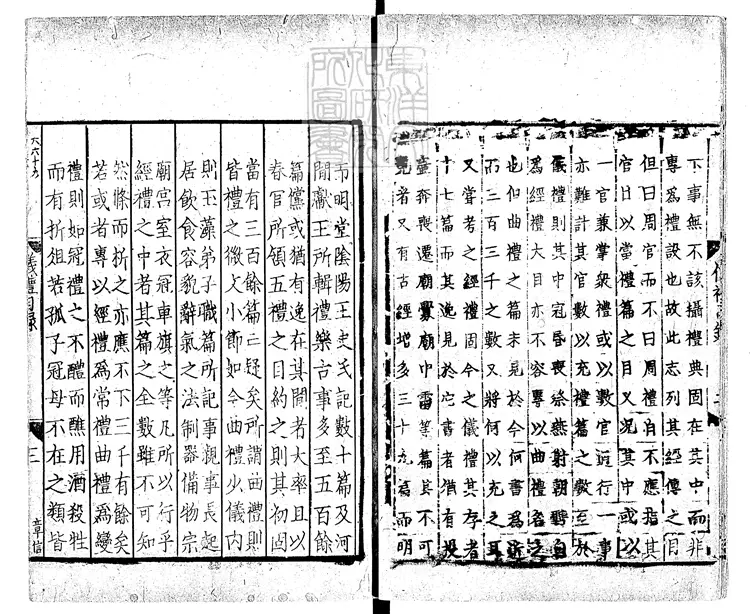 下事無不該攝禮典固在其中而非
專為禮設也故此志列其經傳之目
但曰周官而不曰周禮自不應指其
官目以當禮篇之目又況其中或以
一官兼掌衆禮或以數官通行一事
亦難計其官數以充禮篇之數至於
儀禮則其中冠昏喪祭燕射朝聘自
為經禮大目亦不容專以曲禮名之
也但曲禮之篇未見於今何書為近
而三百三千之數又將何以充之耳
又嘗考之經禮固今之儀禮其存者
十七篇而其逸見於它書者猶有投
壺奔喪遷廟釁廟中霤等篇其不可
見者又有古經增多三十九篇而明
堂陰陽王史氏記數十篇及河
間獻王所輯禮樂古事多至五百餘
篇儻或猶有逸在其間者大率且以
春官所領五禮之目約之則其初固
當有三百餘篇亡疑矣所謂曲禮則
皆禮之微文小節如今曲禮少儀内
則玉藻弟子職篇所記事親事長起
居飲食容貌辭氣之法制器備物宗
廟宮室衣冠車旗之等凡所以行乎
經禮之中者其篇之全數雖不可知
然條而析之亦應不下三千有餘矣
若或者專以經禮為常禮曲禮為變
禮則如冠禮之不醴而醮用酒殺牲
而有折俎若孤子冠母不在之類皆
儀禮目錄
三
章信